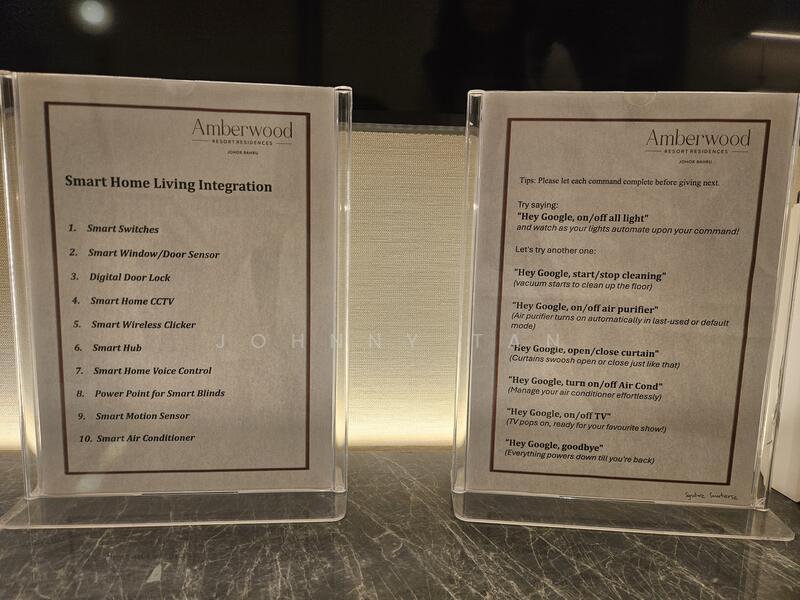 Amberwood
RESORT RESIDENCES
JOHOR BAHRU
Smart Home Living Integration
1. Smart Switches
2. Smart Window/Door Sensor
3. Digital Door Lock
4. Smart Home CCTV
5. Smart Wireless Clicker
6. Smart Hub
7. Smart Home Voice Control
8. Power Point for Smart Blinds
9. Smart Motion Sensor
10. Smart Air Conditioner
Amberwood
RESORT RESIDENCES
JOHOR BAHRU
Tips: Please let each command complete before giving next.
Try saying:
"Hey Google, on/off all light"
and watch as your lights automate upon your command!
Let's try another one:
"Hey Google, start/stop cleaning"
(vacuum starts to clean up the floor)
"Hey Google, on/off air purifier"
(Air purifier turns on automatically in last-used or default
mode)
"Hey Google, open/close curtain"
(Curtains swoosh open or close just like that)
"Hey Google, turn on/off Air Cond"
(Manage your air conditioner effortlessly)
"Hey Google, on/off TV"
(TV pops on, ready for your favourite show!)
"Hey Google, goodbye"
(Everything powers down till you're back)
JOHNNY TAN